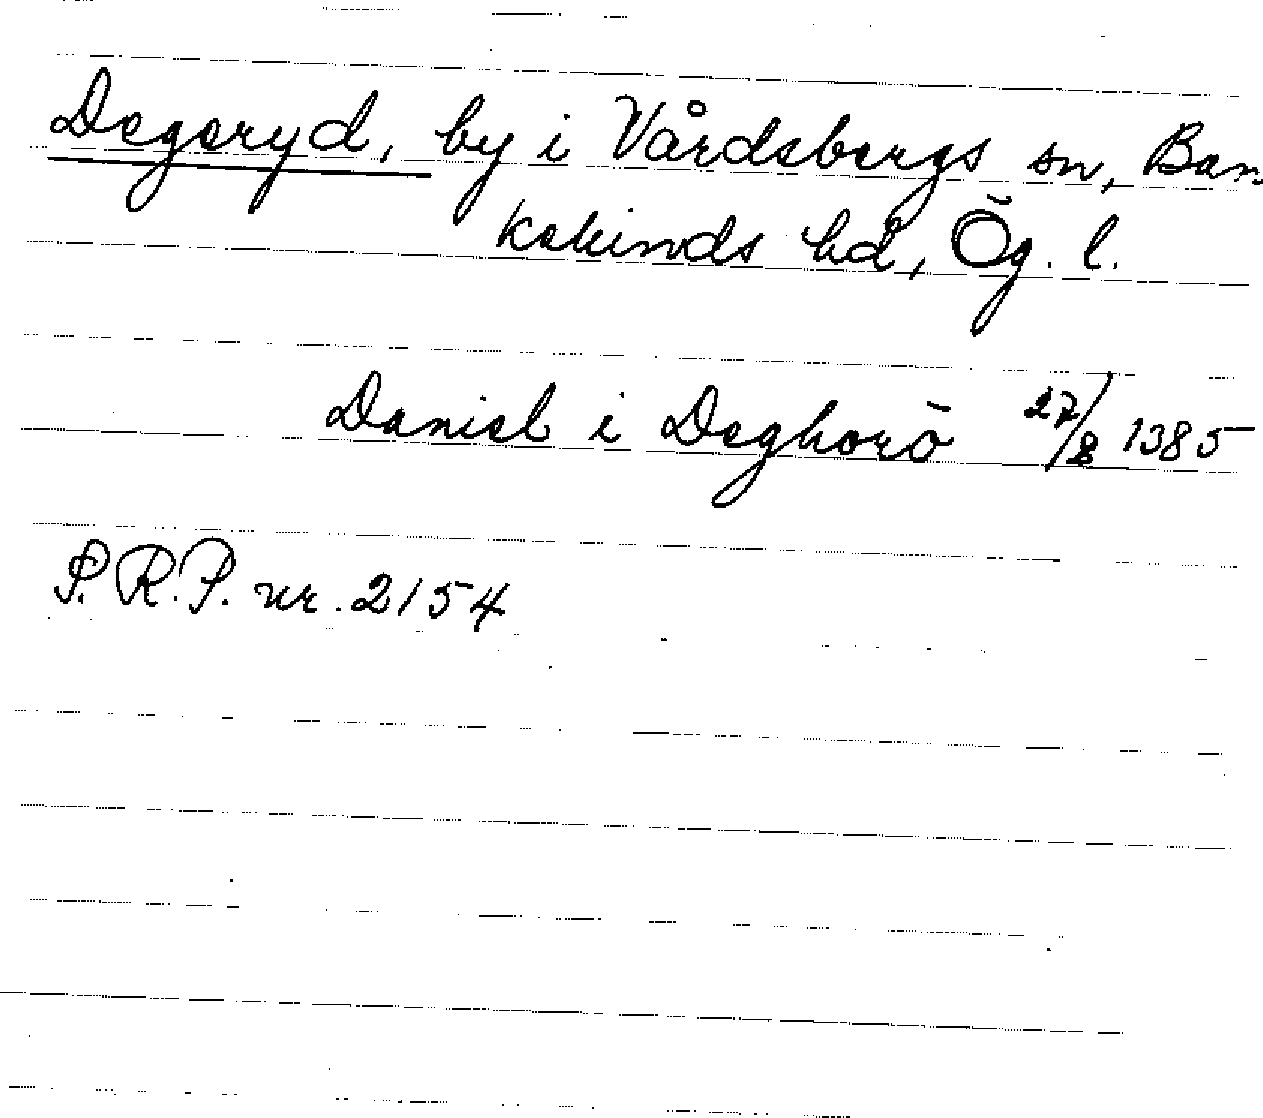 Degeryd, by i Vårdsbergs sn, Ban-
kekinds hd, Ög. l.
Daniel i Deghorö 27/8 1385
S.R.P. nr. 2154